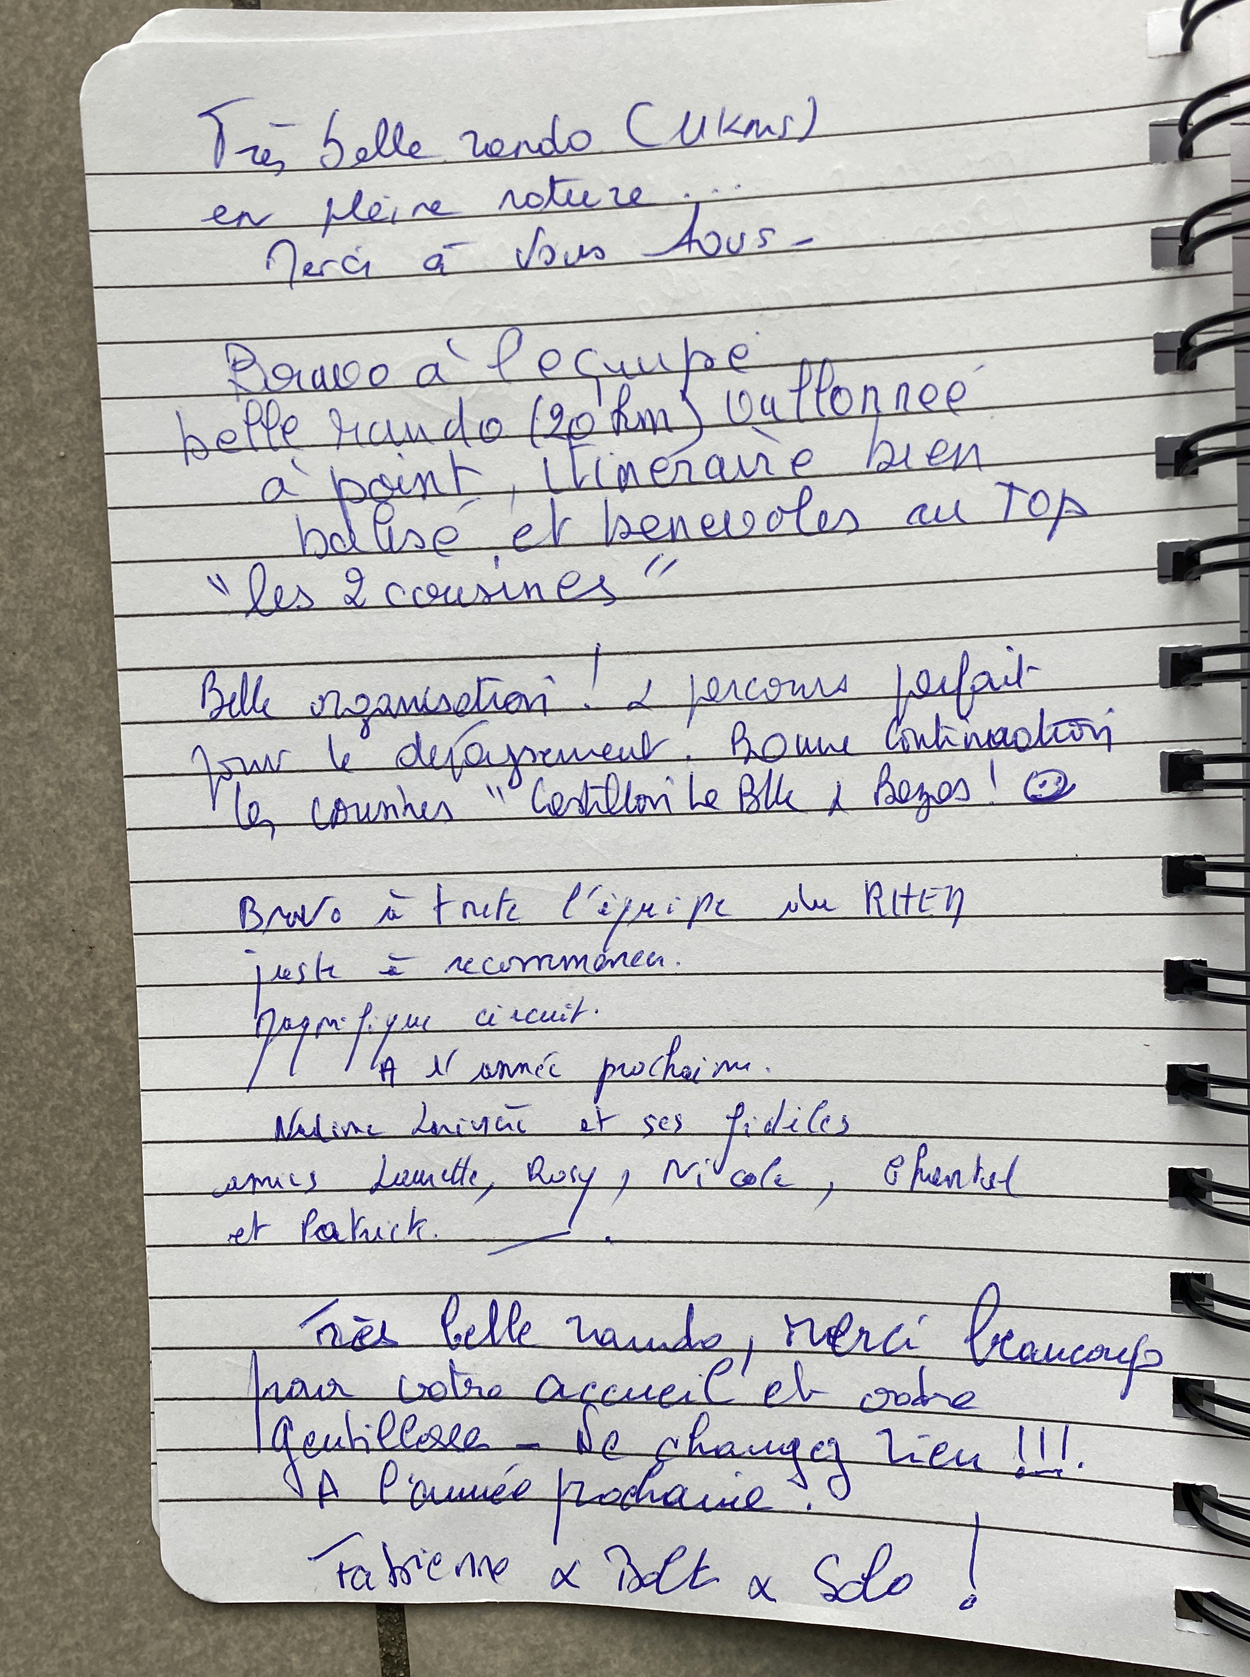 Très belle rando (11kms)
en pleine nature...
Merci à vous tous -
Bravo à l'equipe
belle rando (20 km) vallonneé
à point, itinéraire bien
balisé et benevoles au TOP
"les 2 cousines"
Belle organisation ! & parcours parfait
pour le dépaysement. Bonne continuation
les cousines " Castillon La Blle & Bazas ! ☺
Bravo à toute l'équipe du
juste à recommencer.
Magnifique circuit.
A l'année prochaine.
Nadine et ses fidèles
amies Laurette, Rosy, Nicole, Chantal
et Patrick.
Très belle rando, merci beaucoup
pour votre accueil et votre
gentillesse - Ne changez rien !!!
A l'année prochaine.
Fabienne & Bolt & Solo !